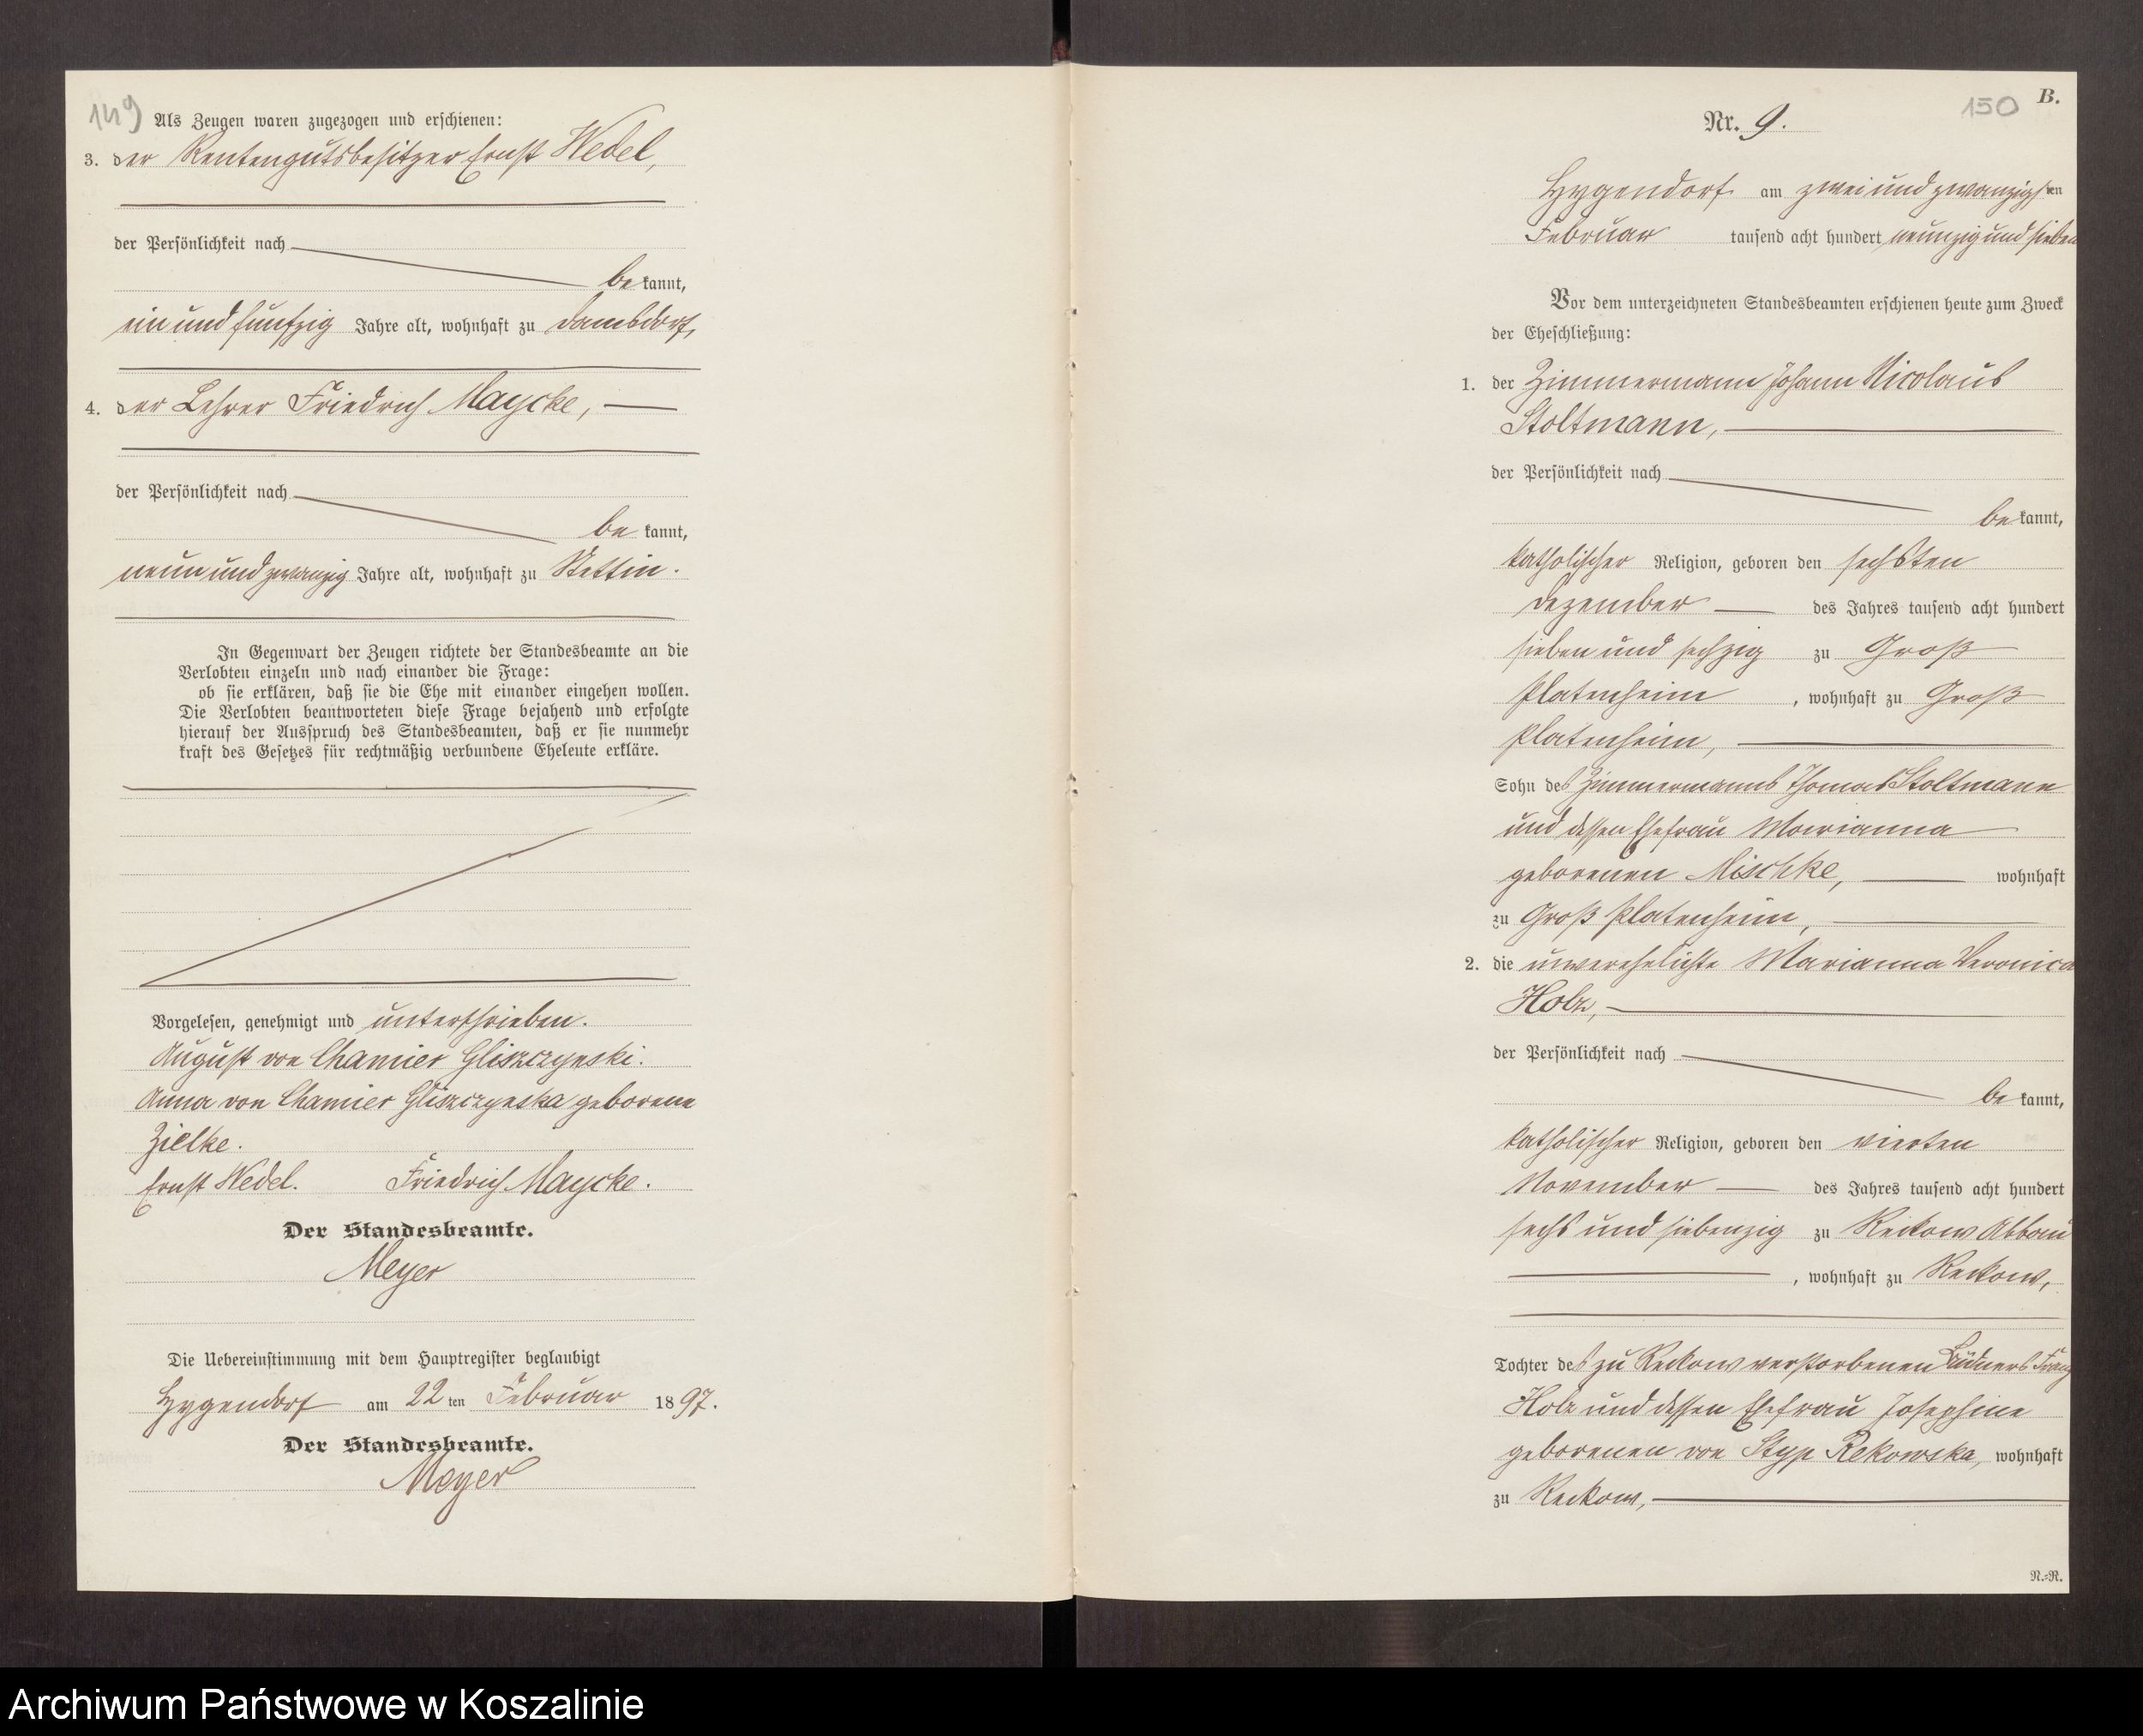 149
Als Zeugen waren zugezogen und erschienen:
3. der Rentengutsbesitzer Ernst Wedel,
der Persönlichkeit nach
be kannt,
ein und fünfzig Jahre alt, wohnhaft zu Damsdorf,
4. der Lehrer Friedrich Maycke,
der Persönlichkeit nach
be kannt,
neun und zwanzig Jahre alt, wohnhaft zu Stettin.
In Gegenwart der Zeugen richtete der Standesbeamte an die
Verlobten einzeln und nach einander die Frage:
ob sie erklären, daß sie die Ehe mit einander eingehen wollen.
Die Verlobten beantworteten diese Frage bejahend und erfolgte
hierauf der Ausspruch des Standesbeamten, daß er sie nunmehr
kraft des Gesetzes für rechtmäßig verbundene Eheleute erkläre.
Vorgelesen, genehmigt und unterschrieben.
August von Chamier Gliszczynski.
Anna von Chamier Gliszczynska geborene
Zielke.
Ernst Wedel. Friedrich Maycke.
Der Standesbeamte.
Meyer
Die Uebereinstimmung mit dem Hauptregister beglaubigt
Hygendorf am 22 ten Februar 1897.
Der Standesbeamte.
Meyer
150 B.
Nr. 9.
Hygendorf am zwei und zwanzigsten
Februar tausend acht hundert neunzig und sieben
Vor dem unterzeichneten Standesbeamten erschienen heute zum Zweck
der Eheschließung:
1. der Zimmermann Johann Nicolaus
Stoltmann,
der Persönlichkeit nach
be kannt,
katholischer Religion, geboren den sechsten
Dezember des Jahres tausend acht hundert
sieben und sechzig zu Groß
Platenheim, wohnhaft zu Groß
Platenheim,
Sohn des Zimmermanns Thomas Stoltmann
und dessen Ehefrau Marianna
geborenen Mischke, wohnhaft
zu Groß Platenheim,
2. die unverehelichte Marianna Veronica
Holz,
der Persönlichkeit nach
be kannt,
katholischer Religion, geboren den vierten
November des Jahres tausend acht hundert
sechs und siebenzig zu Reckow Abbau
, wohnhaft zu Reckow,
Tochter des zu Reckow verstorbenen Büdners Franz
Holz und dessen Ehefrau Josephine
geborenen von Styp Rekowska, wohnhaft
zu Reckow,
N.=R.
Archiwum Państwowe w Koszalinie